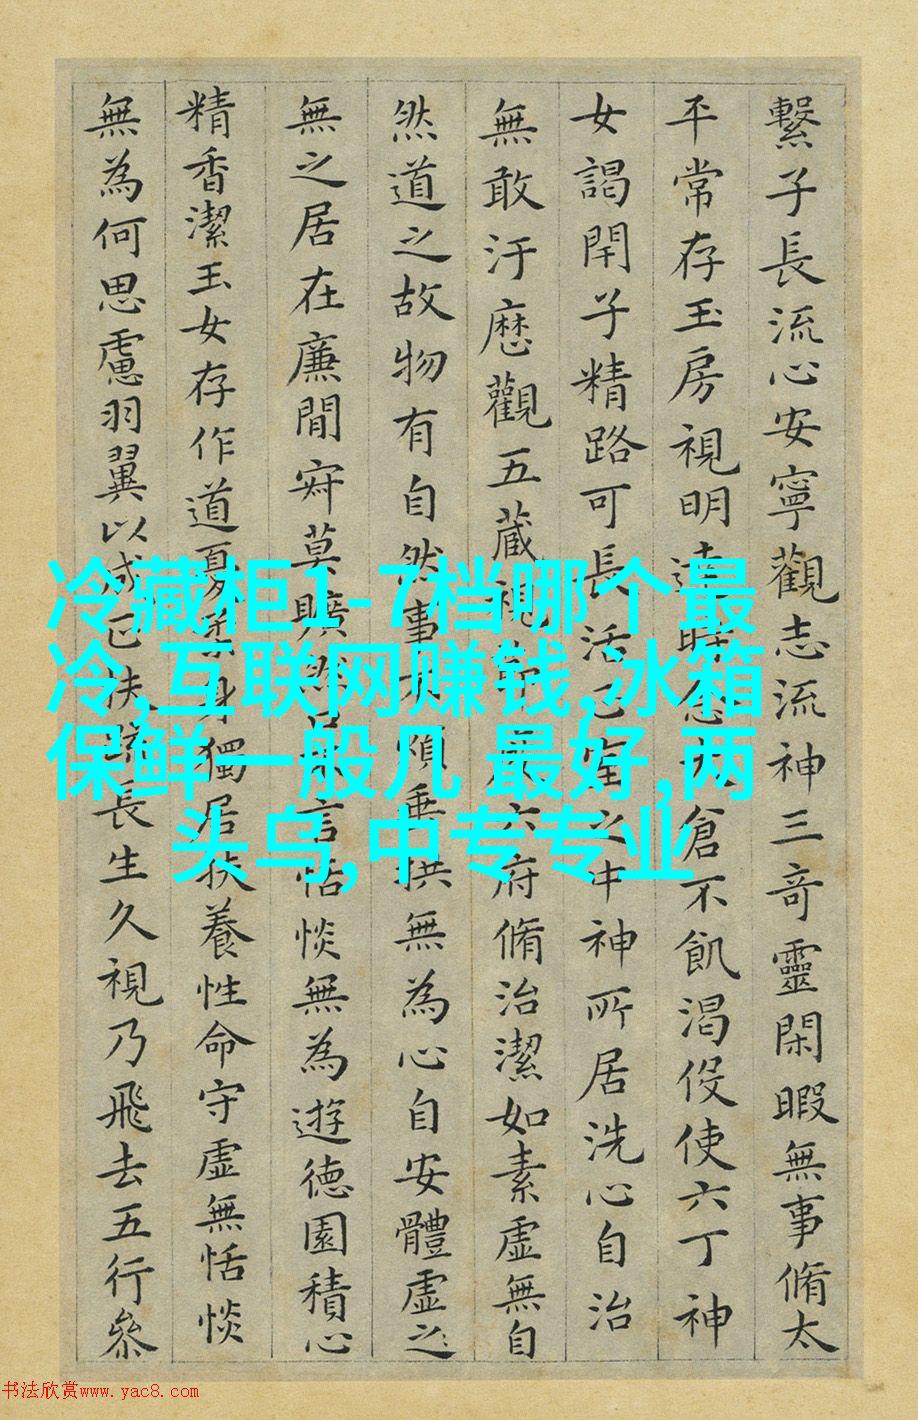 繫子長流心安寧觀志流神三奇靈閑暇無事脩太
平常存玉房視明達時念大倉不飢渴伇使六丁神
女謁閇子精路可長活正室之中神所居洗心自治
無敢汙歷觀五藏視節度六府脩治潔如素虛無自
然道之故物有自然事不煩垂拱無為心自安體虛之
無之居在廉間寂莫曠然口不言恬惔無為遊德園積心
精香潔玉女存作道憂柔身獨居扶養性命守虛無恬惔
無為何思慮羽翼以成正扶疏長生久視乃飛去五行參
冷藏柜1-7档哪个最
冷,互联网赚钱,冰箱
保鲜一般几 最好,两
头乌,中专专业
书法欣赏www.yac8.com